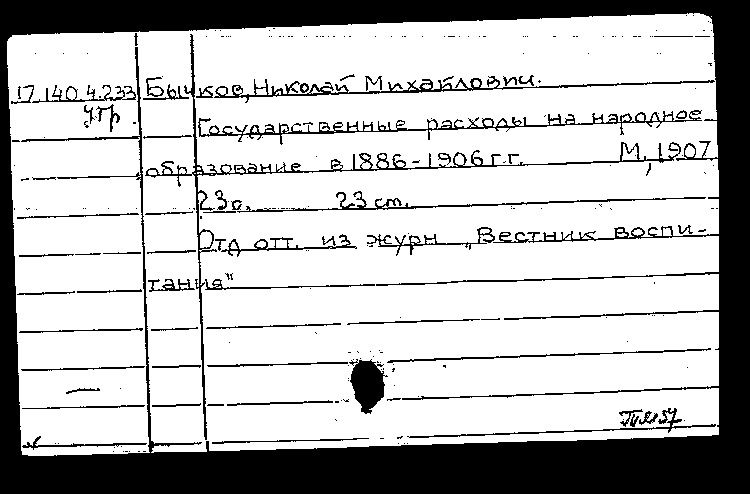 17.140.4.233 Бычков, Николай Михайлович.
Утр.
Государственные расходы на народное
образование в 1886-1906 г.г. М, 1907
23 с. 23 ст.
Отд отт. из журн „Вестник воспи-
тания"